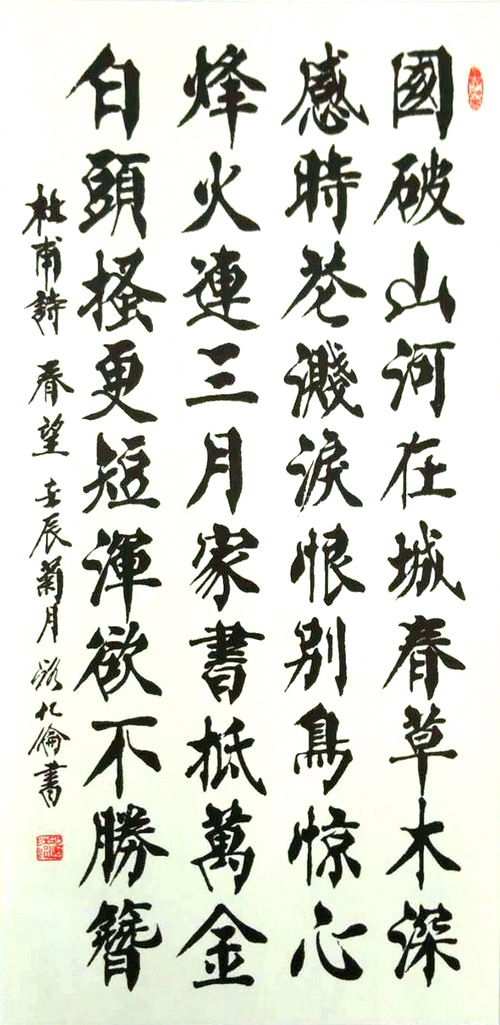 國破山河在城春草木深
感時花濺淚恨別鳥惊心
烽火連三月家書抵萬金
白頭搔更短渾欲不勝簪
杜甫詩 春望 壬辰菊月 仁倫書